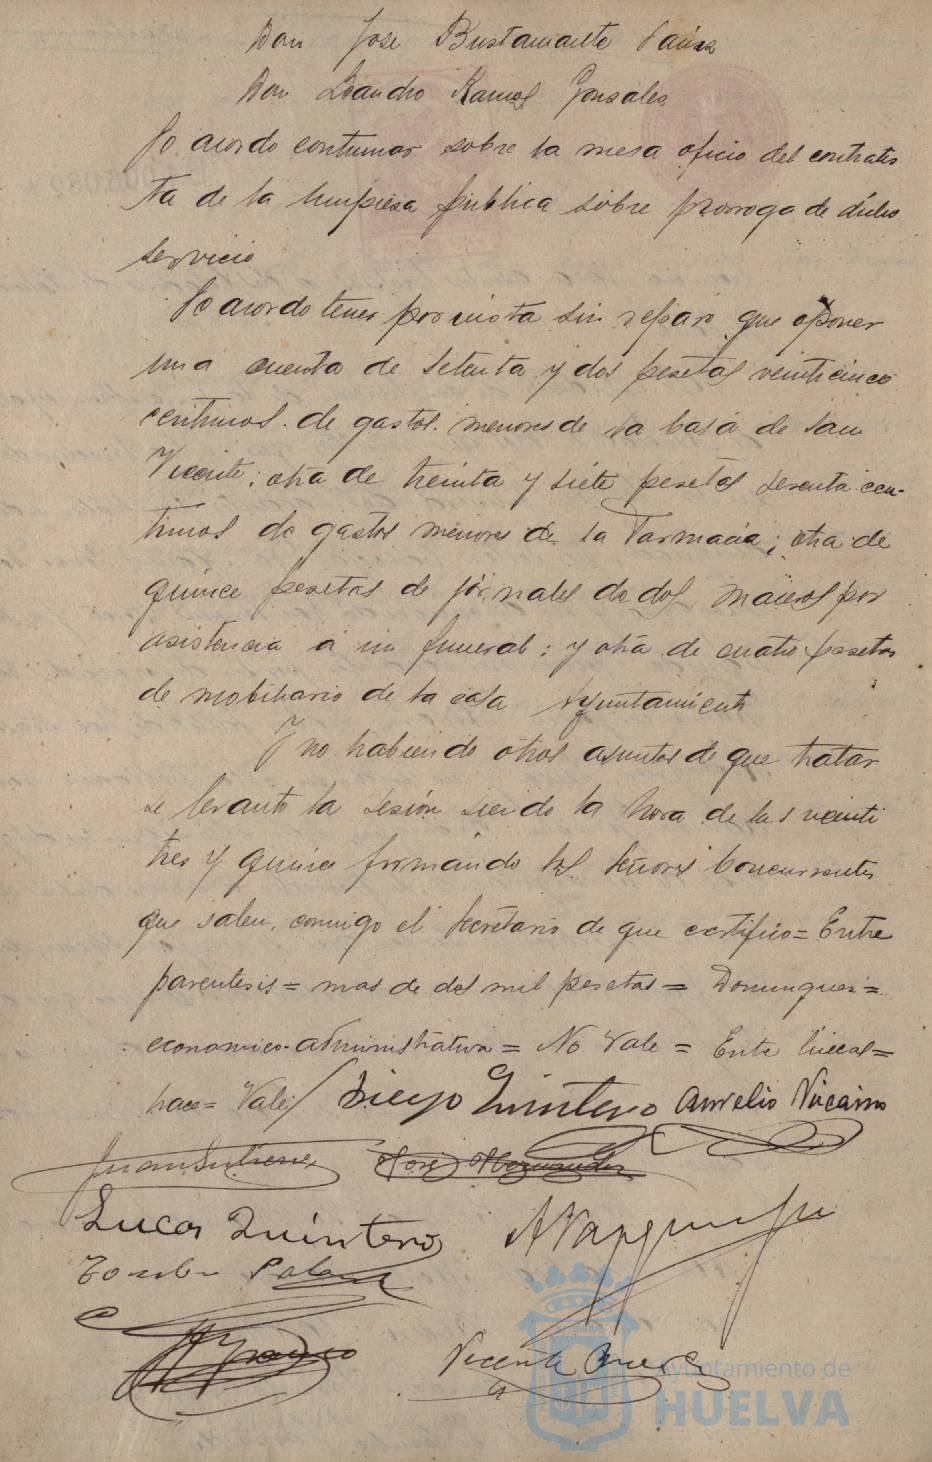 Don Jose Bustamante Sáinz
Don Leandro Ramos Gonzalez
Se acordo continuar sobre la mesa oficio del contratis
ta de la limpieza pública sobre prorroga de dicho
servicio
Se acordo tener por vista sin reparo que oponer
una cuenta de setenta y dos pesetas veinticinco
centimos de gastos menores de la casa de San
Vicente; otra de treinta y siete pesetas sesenta cen-
timos de gastos menores de la Farmacia; otra de
quince pesetas de jornales de dos maceros por
asistencia á un funeral: y otra de cuatro pesetas
de mobiliario de la casa Ayuntamiento
Y no habiendo otros asuntos de que tratar
se levanto la sesión siendo la hora de las veinti
tres y quince firmando los señores Concurrentes
que saben, conmigo el Secretario de que certifico = Entre
parentesis = mas de dos mil pesetas = Dominguez =
economico-administrativa = No Vale = Entre lineas =
hace = Vale/ Diego Quintero Aurelio Vizcaino
Juan Gutierrez José
Lucas Quintero A Vazquez
Vicente
Ayuntamiento de
HUELVA